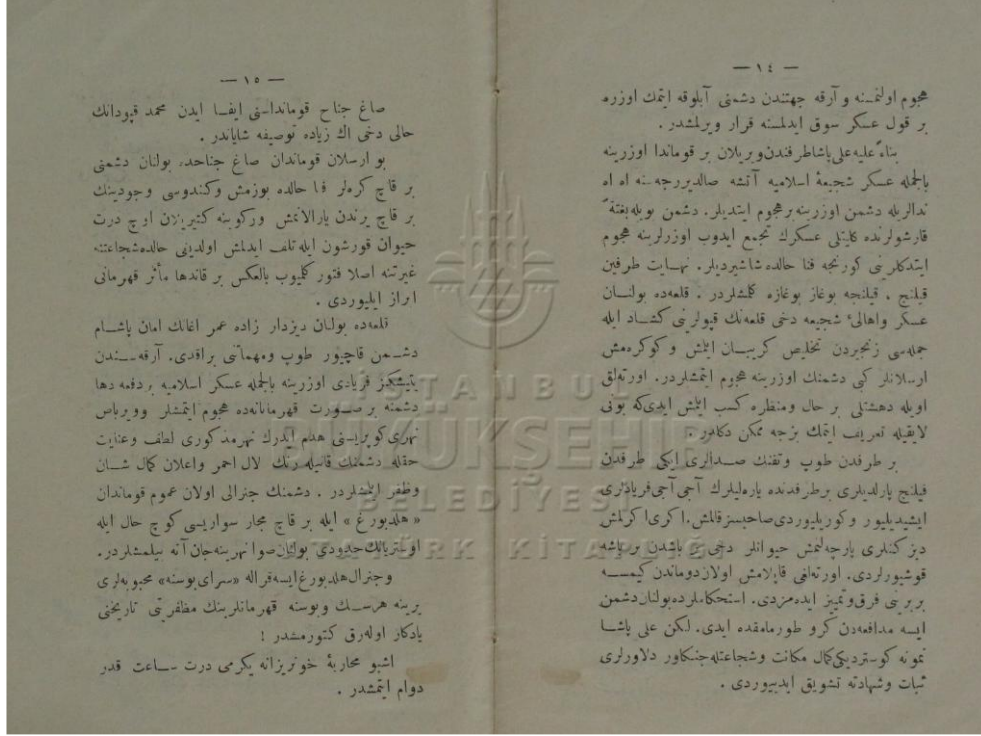 — ١٤ —
هجوم اولنمسنه و آرقه جهتندن دشمنی آبلوقه ایتمك اوزره
بر قول عسكر سوق ایدلمسنه قرار ویرلمشدر .
بناءً علیه علی پاشا طرفندن ویریلان بر قوماندا اوزرینه
بالجمله عسكر شجیعهٔ اسلامیه آتشه صالدیررجه‌سنه اه اه
ندالریله دشمن اوزرینه بر هجوم ایتدیلر. دشمن بویله بغتةً
قارشولرنده كلیتلی عسكرك تجمع ایدوب اوزرلرینه هجوم
ایتدكلرینی كورنجه فنا حالده شاشیردیلر. نهایت طرفین
قیلنج ، قیلنجه بوغاز بوغازه كلمشلردر . قلعه‌ده بولنان
عسكر واهالیٔ شجیعه دخی قلعه‌نك قپولرینی كشاد ایله
جمله‌سی زنجیردن تخلیص كریبان ایتمش و كوكره‌مش
ارسلانلر كبی دشمنك اوزرینه هجوم ایتمشلردر. اورته‌لق
اویله دهشتلی بر حال ومنظره كسب ایتمش ایدی‌كه بونی
لایقیله تعریف ایتمك بزجه ممكن دكلدر .
بر طرفدن طوپ وتفنك صدالری ایكی طرفدن
قیلنج پارلدیلری بر طرفدنده یاره‌لیلرك آجی آجی فریادلری
ایشیدیلیور و كوریلیوردی صاحبسز قالمش اكری اكرلمش
دیزكنلری پارچه‌لنمش حیوانلر دخی بر باشدن بر باشه
قوشیورلردی. اورته‌لغی قاپلامش اولان دوماندن كیمسه
بربرینی فرق وتمییز ایده‌مزدی. استحكاملرده بولنان دشمن
ایسه مدافعه‌دن كرو طورمامقده ایدی. لكن علی پاشا
نمونه كوستردیكی كمال مكانت وشجاعتله جنكاور دلاورلری
ثبات وشهادته تشویق ایدییوردی .
— ١٥ —
صاغ جناح قوماندانلغنی ایفا ایدن محمد قپودانك
حالی دخی اك زیاده توصیفه شایاندر .
بو ارسلان قوماندان صاغ جناحده بولنان دشمنی
بر قاچ كره‌لر فنا حالده بوزمش وكندوسی وجودینك
بر قاچ یرندن یارالانمش وركوبنه كتیریلان اوچ درت
حیوان قورشون ایله تلف ایدلمش اولدیغی حالده شجاعتنه
غیرتنه اصلا فتور كلمیوب بالعكس بر قاندها مآثر قهرمانی
ابراز ایلیوردی .
قلعه‌ده بولنان دیزدار زاده عمر اغانك امان پاشام
دشمن قاچیور طوپ ومهماتنی براقدی. آرقه‌سندن
یتیشكز فریادی اوزرینه بالجمله عسكر اسلامیه بر دفعه دها
دشمنه بر صورت قهرمانانه‌ده هجوم ایتمشلر وویرباس
نهری كوپریسنی هدم ایدرك نهر مذكوری لطف وعنایت
حقله دشمنك قانیله رنك لال احمر واعلان كمال شان
وظفر ایتمشلردر . دشمنك جنرالی اولان عموم قوماندان
« هلدبورغ » ایله بر قاچ مجار سواریسی كوچ حال ایله
اوستریانك حدودی بولنان صوا نهرینه جان آته بیلمشلردر.
و جنرال هلدبورغ ایسه قراله «سرای بوسنه» محبوبه‌لری
یرینه هرسك وبوسنه قهرمانلرینك مظفریتی تاریخنی
یادكار اوله‌رق كتورمشدر !
اشبو محاربهٔ خونریزانه یكرمی درت ساعت قدر
دوام ایتمشدر .
İSTANBUL
BÜYÜKŞEHİR
BELEDİYESİ
ATATÜRK KİTAPLIĞI